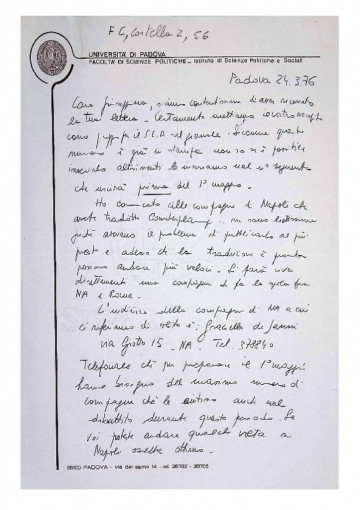 F6, Cartella 2, 56
UNIVERSITÀ DI PADOVA
FACOLTÀ DI SCIENZE POLITICHE - Istituto di Scienze Politiche e Sociali
Padova 24.3.76
siamo contentissime di aver ricevuto
la tua lettera. Certamente mettiamo il vostro
come gruppo per il S.L.D. sul giornale. Siccome questo
numero è già in stampa non so se è possibile
inserirlo altrimenti lo inseriamo nel n° seguente
che uscirà prima del 1° maggio.
Ho comunicato alle compagne di Napoli che
avete tradotto Counterplanning
il problema di pubblicarlo al più
presto e adesso che la traduzione è pronta
possono andare più veloci. Si farà viva
direttamente una compagna che fa la spola fra
NA e Roma.
L'indirizzo della compagna di NA a cui
ci riferiamo di solito è: Graziella de
via Giotto 15 - NA - Tel. 372840
Telefonale che per preparare il 1° maggio
hanno bisogno del massimo numero di
compagne che le aiutino anche nel
dibattito durante questo periodo. Se
voi potete andare qualche volta a
Napoli sarebbe ottimo.
35100 PADOVA - via del santo 14 - tel.